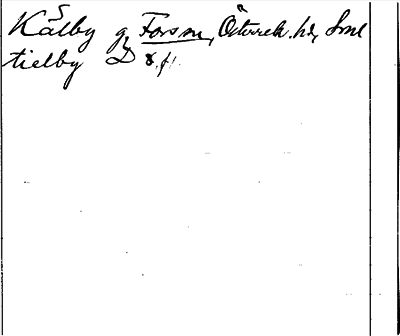 Kålby g, Forsm, Österrek. hd, Sml
tielby D 8. fl.